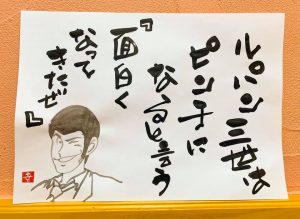 ルパン三世は
ピンチに
なると言う
『面白く
なって
きたぜ』